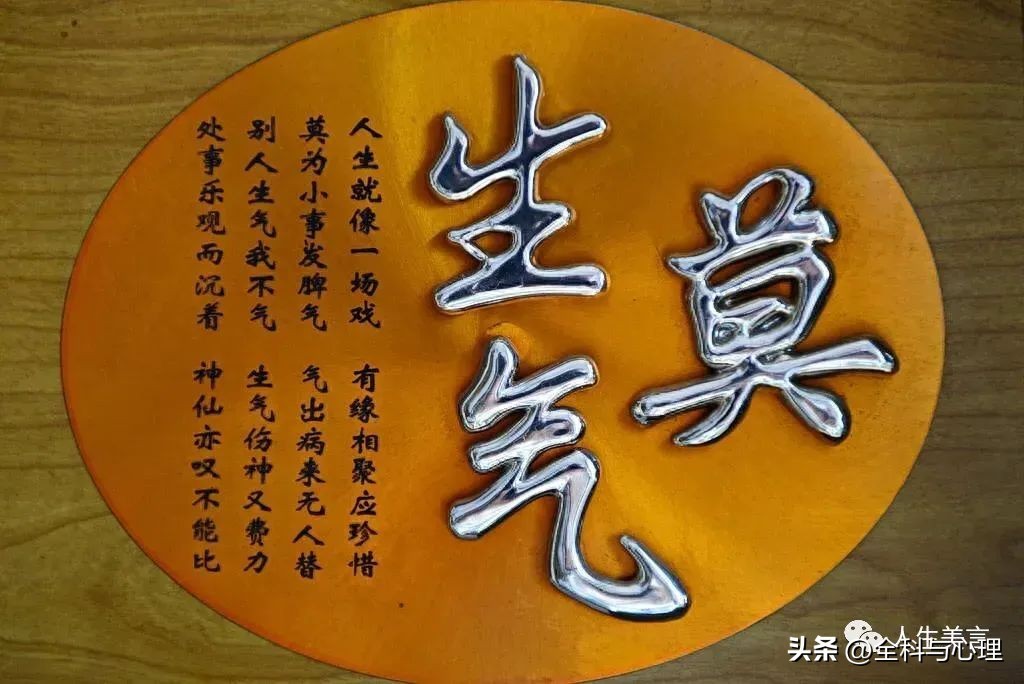 莫
生气
人生就像一场戏 有缘相聚应珍惜
莫为小事发脾气 气出病来无人替
别人生气我不气 生气伤神又费力
处事乐观而沉着 神仙亦叹不能比
人生美言
头条 @全科与心理